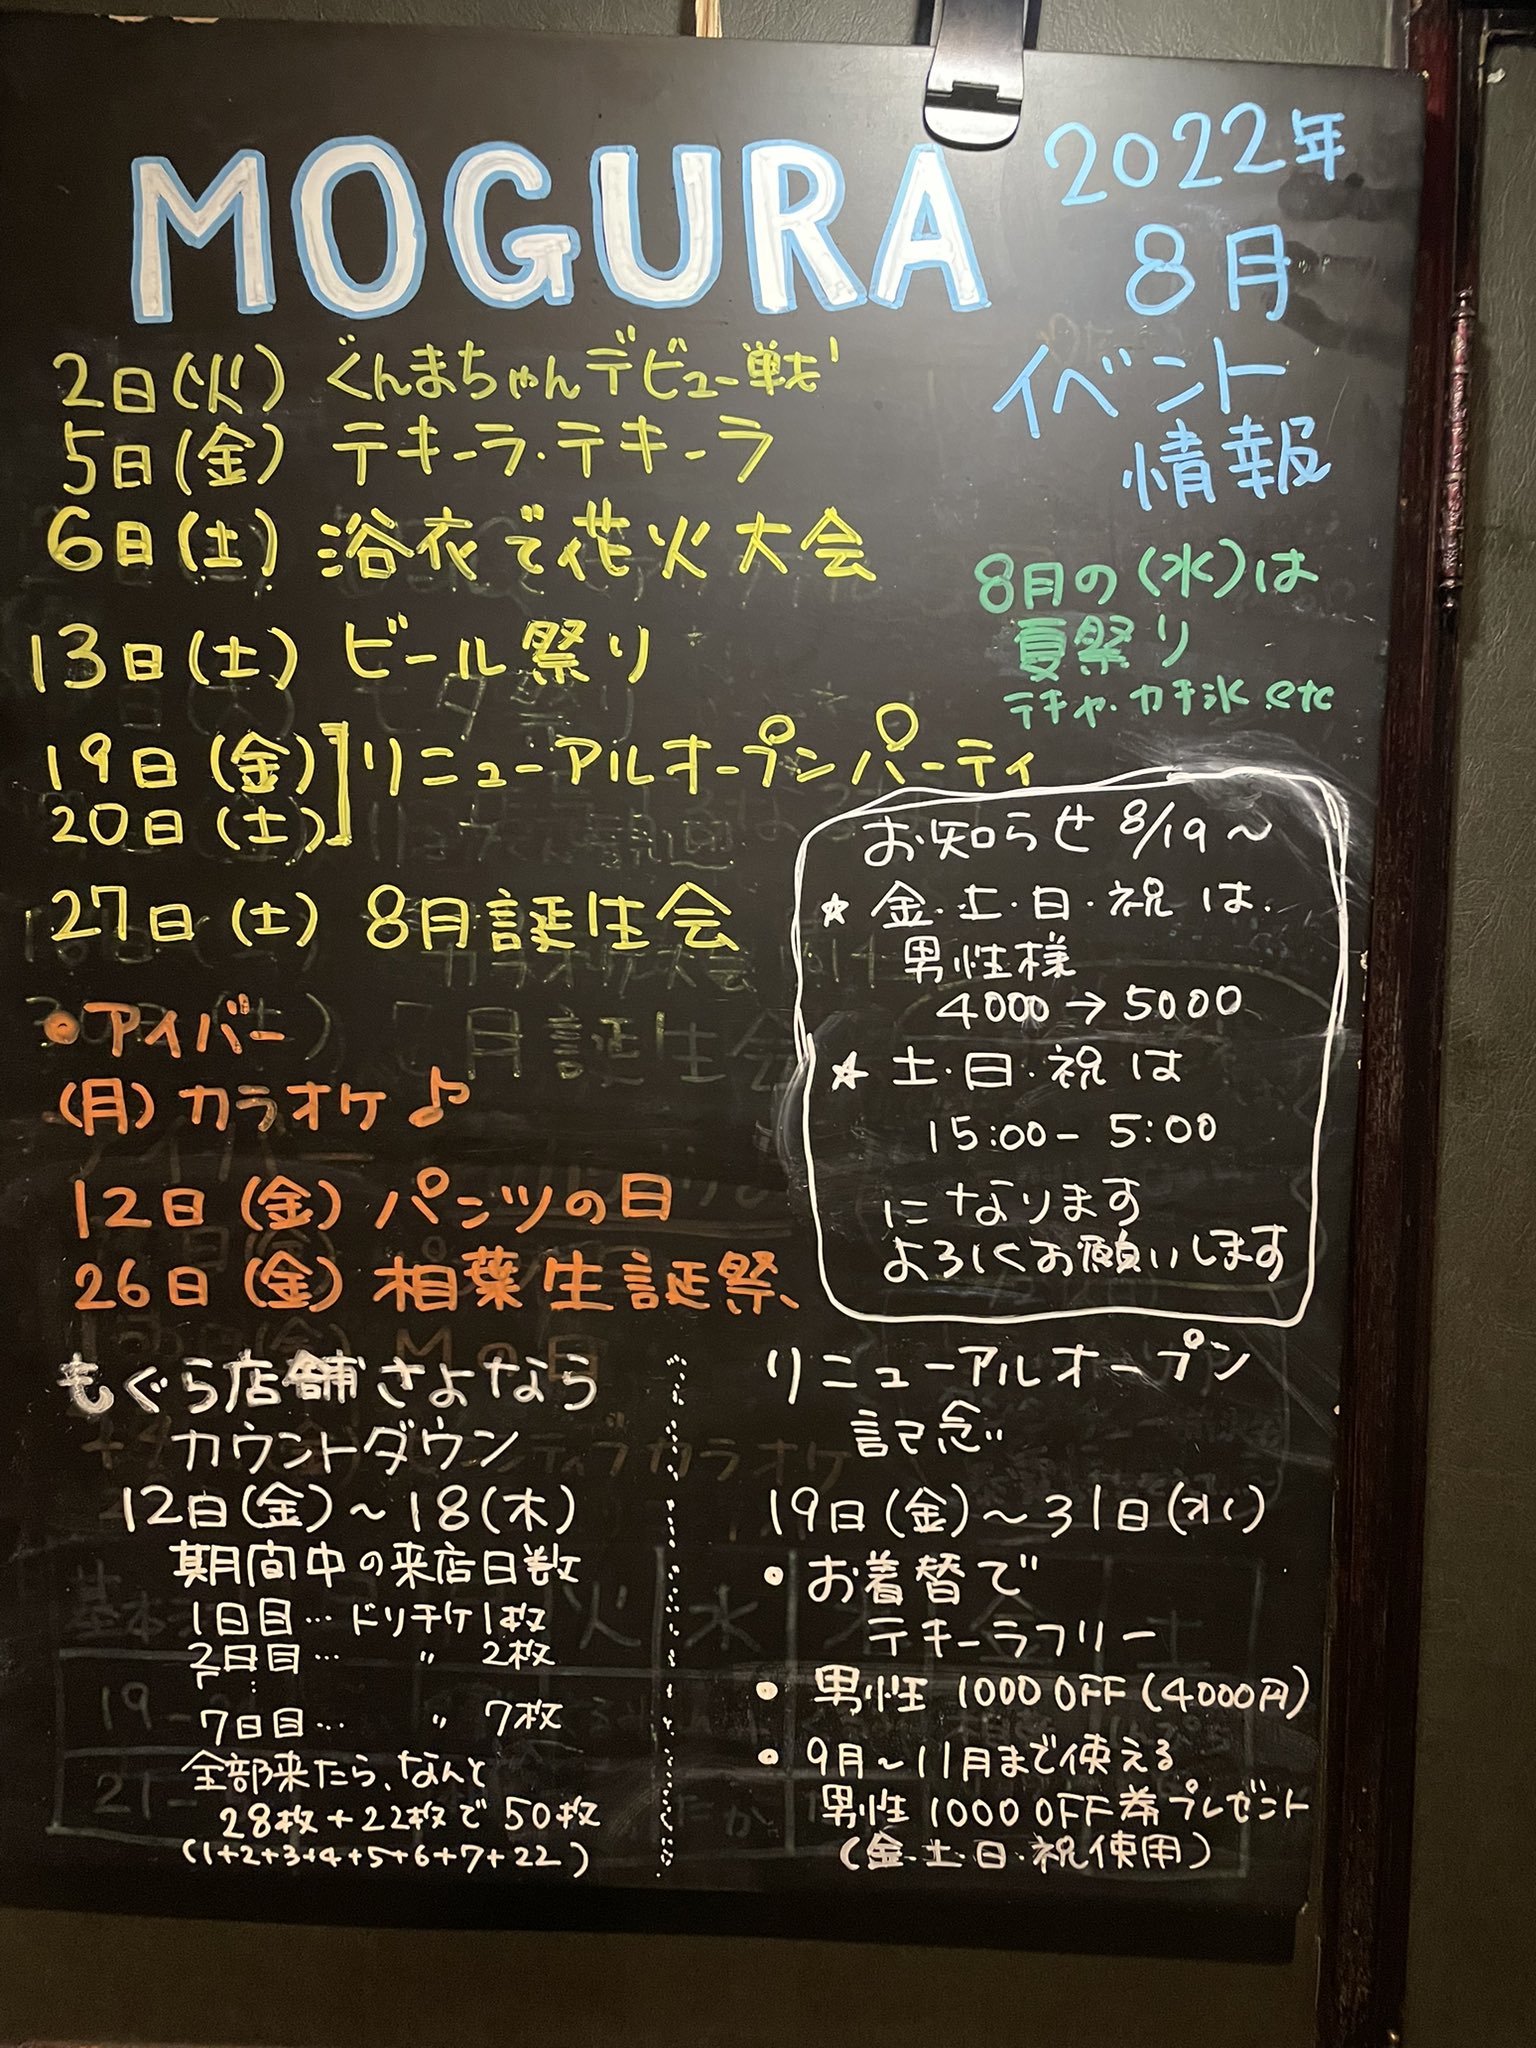 MOGURA
2022年
8月
イベント
情報
2日(火) ぐんまちゃんデビュー戦!
5日(金) テキーラ・テキーラ
6日(土) 浴衣で花火大会
13日(土) ビール祭り
19日(金)
20日(土)
リニューアルオープンパーティ
27日(土) 8月誕生会
8月の(水)は
夏祭り
テキヤ・カキ氷 etc
お知らせ 8/19〜
☆ 金・土・日・祝は.
男性様
4000→5000
☆ 土・日・祝は
15:00- 5:00
になります
よろしくお願いします
・アイバー
(月) カラオケ♪
12日(金) パンツの日
26日(金) 相葉生誕祭
もぐら店舗さよなら
カウントダウン
12日(金)〜18(木)
期間中の来店日数
1日目… ドリチケ1枚
2日目… 〃 2枚
7日目… 〃 7枚
全部来たら、なんと
28枚+22枚で50枚
(1+2+3+4+5+6+7+22)
リニューアルオープン
記念
19日(金)〜31日(水)
・お着替で
テキーラフリー
・男性 1000 OFF (4000円)
・9月〜11月まで使える
男性 1000 OFF券プレゼント
(金.土.日.祝使用)